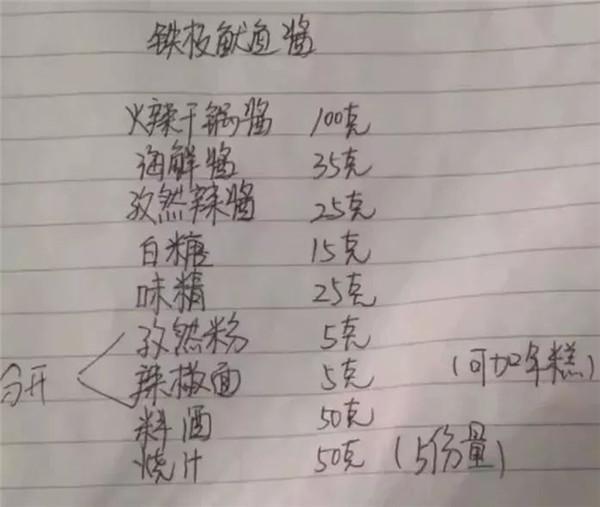 铁板鱿鱼酱
火辣干锅酱 100克
海鲜酱 35克
孜然辣酱 25克
白糖 15克
味精 25克
孜然粉 5克
分开 辣椒面 5克 (可加年糕)
料酒 50克
烧汁 50克 (5份量)